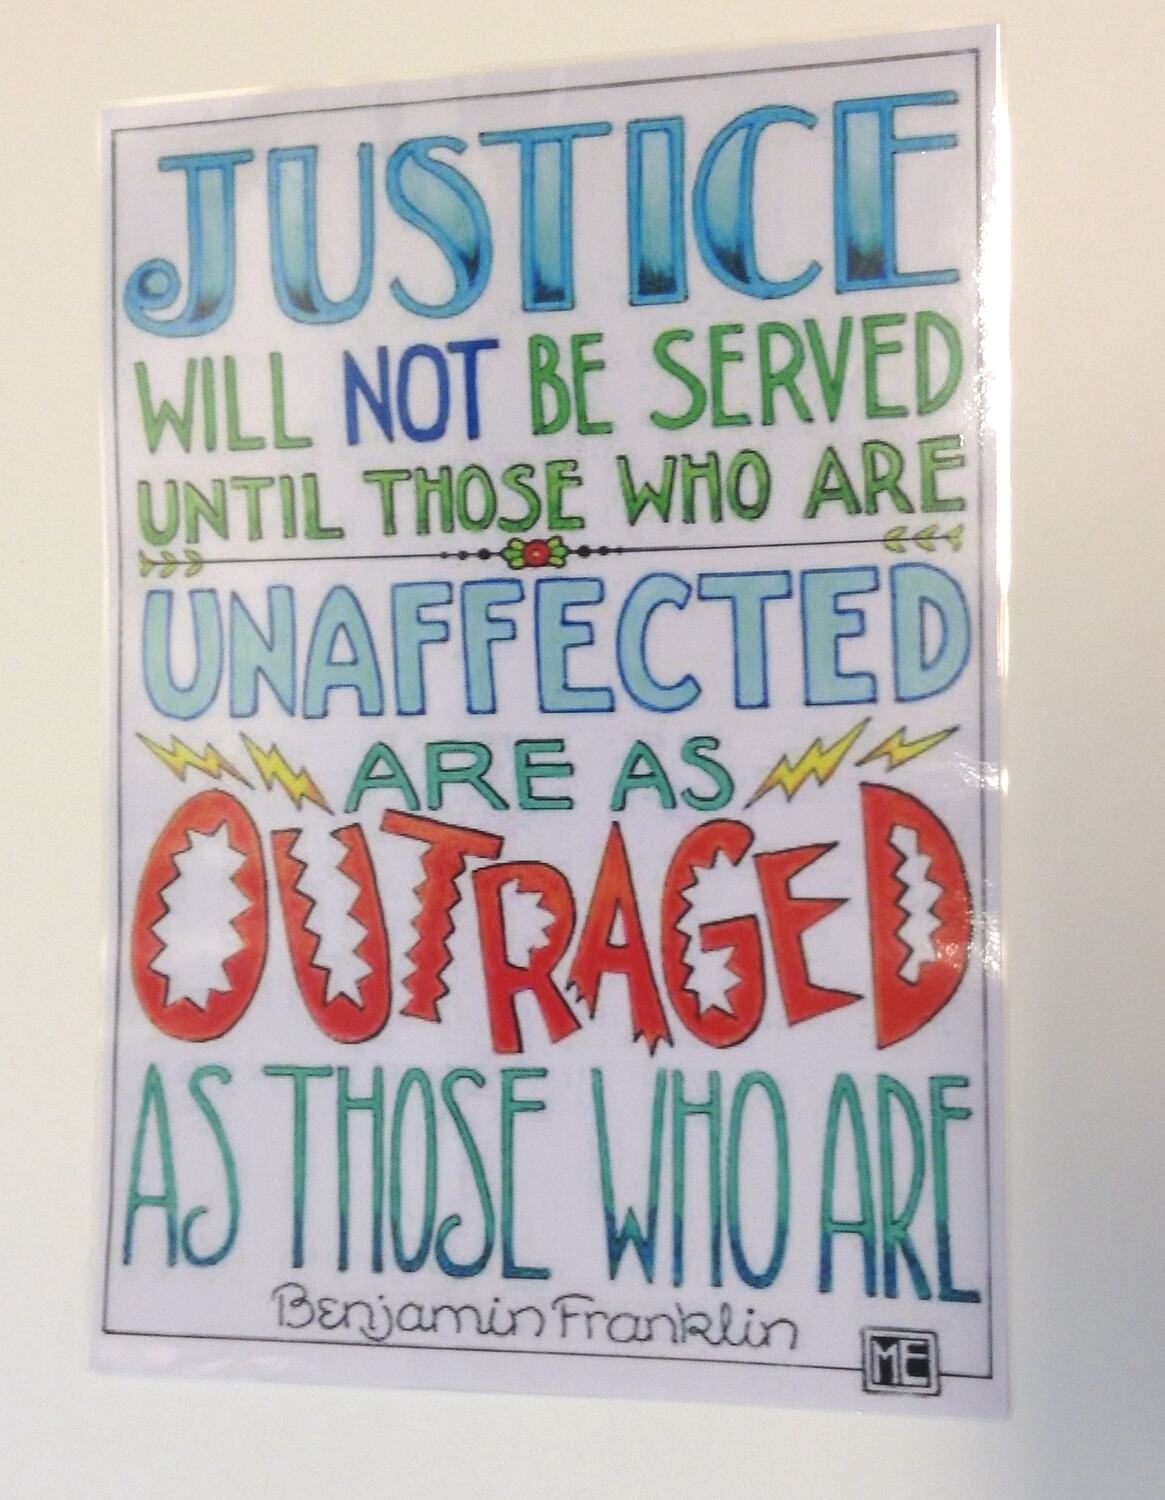 JUSTICE
WILL NOT BE SERVED
UNTIL THOSE WHO ARE
UNAFFECTED
ARE AS
OUTRAGED
AS THOSE WHO ARE
Benjamin Franklin
ME